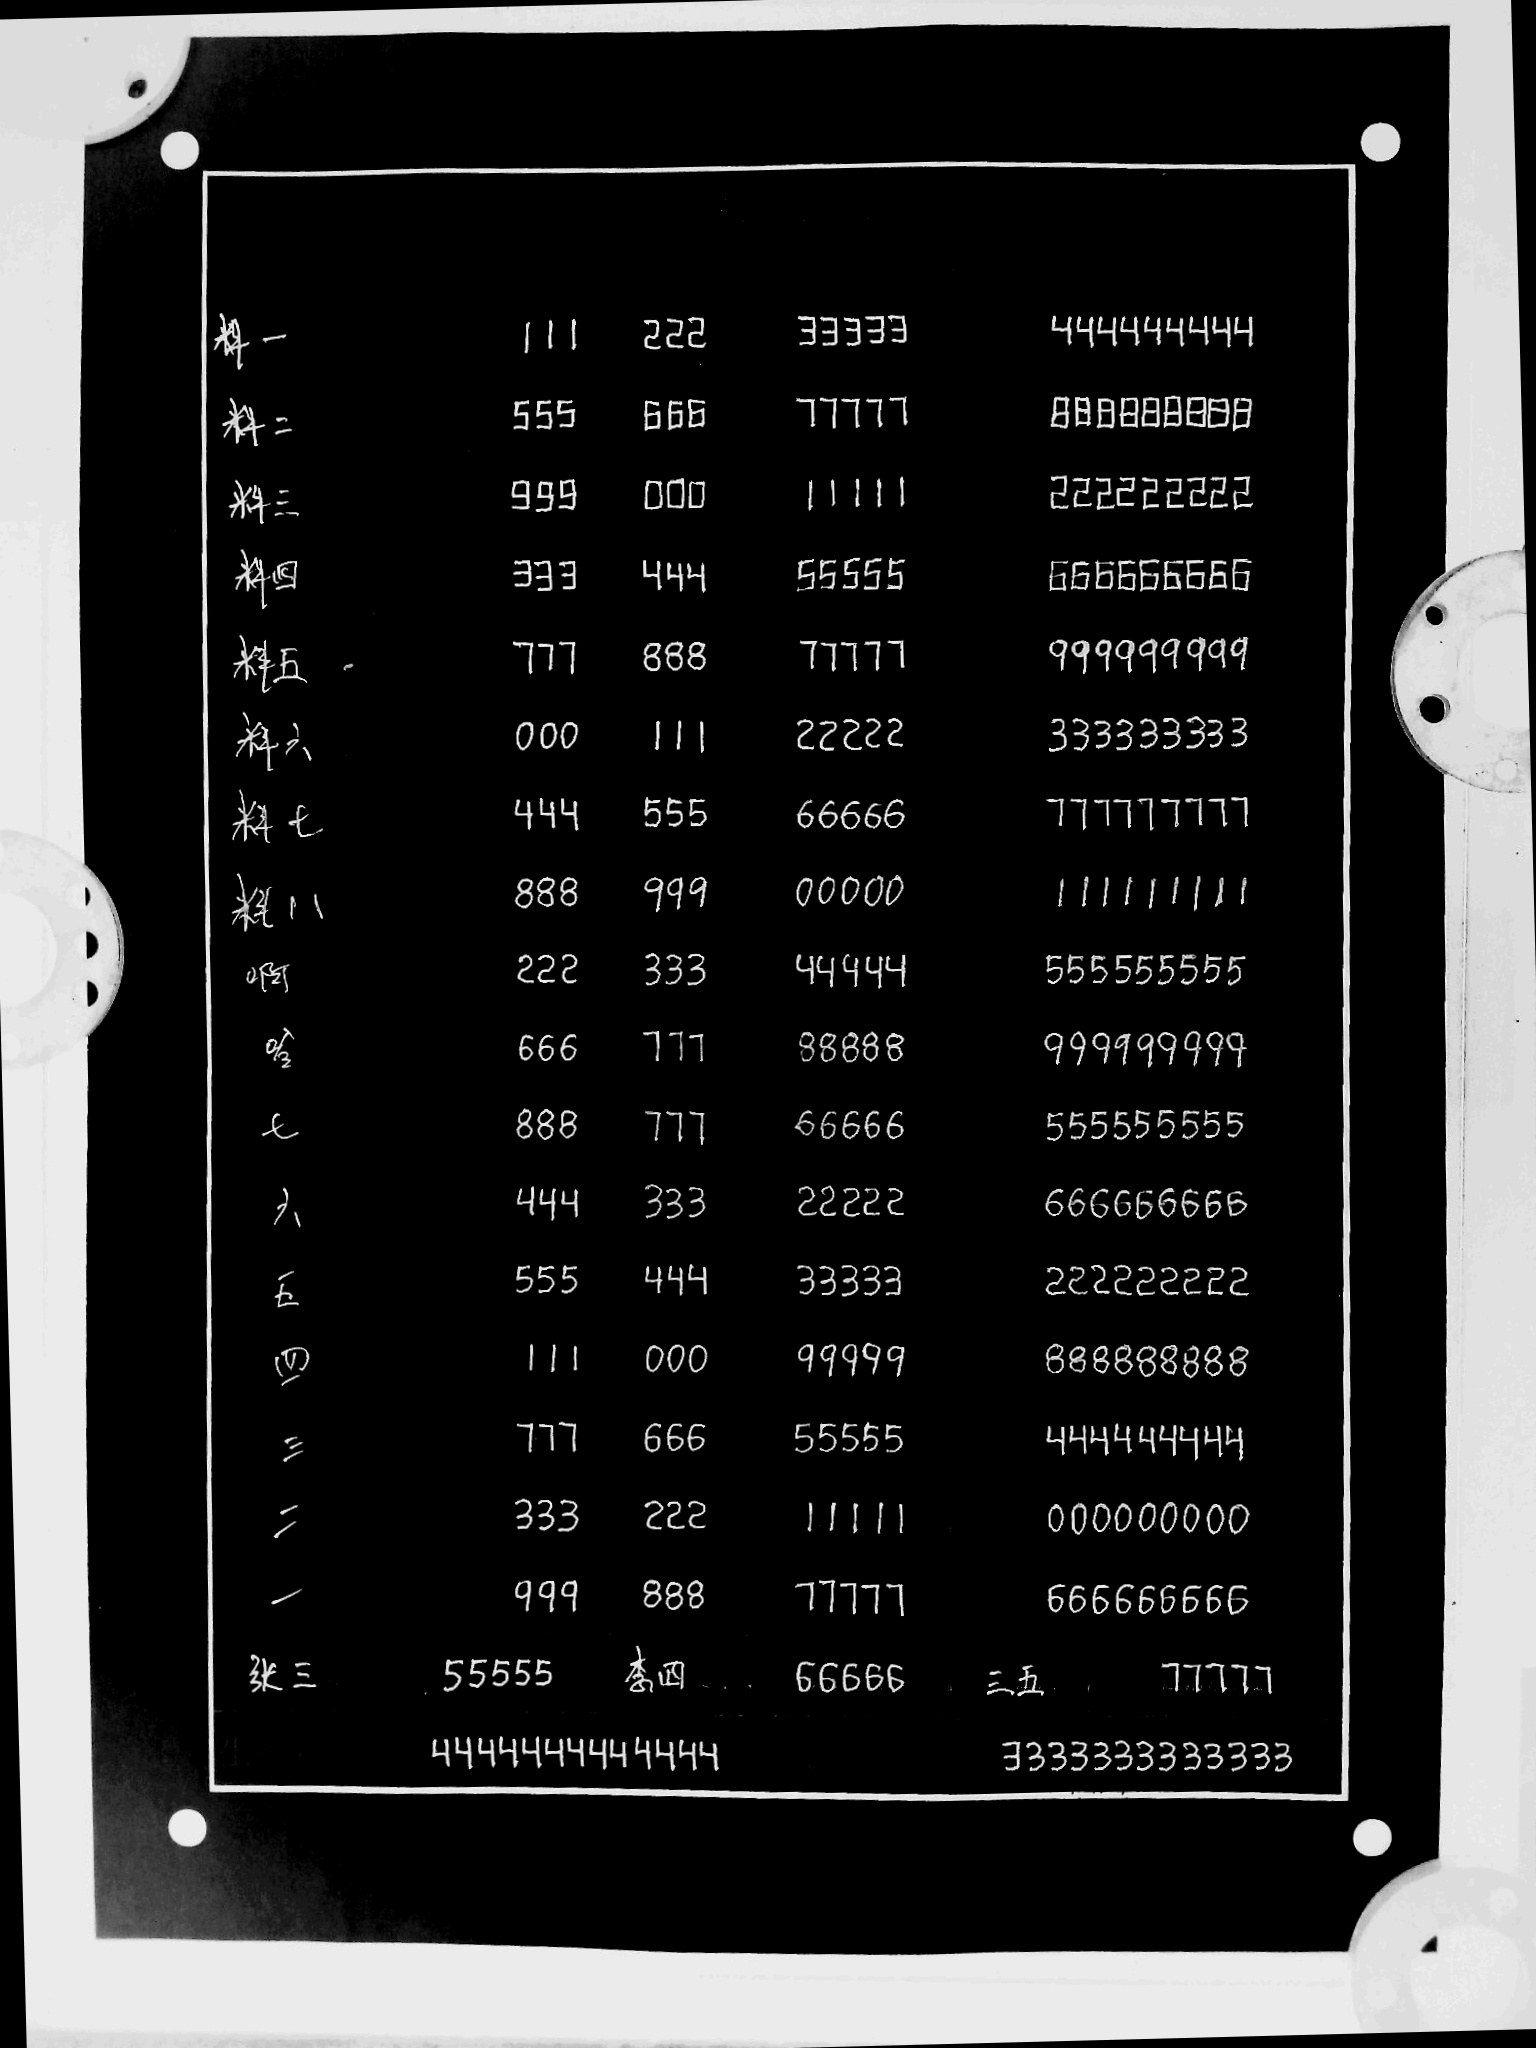 料一 111 222 33333 444444444
料二 555 666 77777 888888888
料三 999 000 11111 222222222
料四 333 444 55555 666666666
料五 777 888 77777 999999999
料六 000 111 22222 333333333
料七 444 555 66666 777777777
料八 888 999 00000 111111111
啊 222 333 44444 555555555
哈 666 777 88888 999999999
七 888 777 66666 555555555
六 444 333 22222 666666666
五 555 444 33333 222222222
四 111 000 99999 888888888
三 777 666 55555 444444444
二 333 222 11111 000000000
一 999 888 77777 666666666
张三 55555 李四 66666 三五 77777
4444444444444 3333333333333